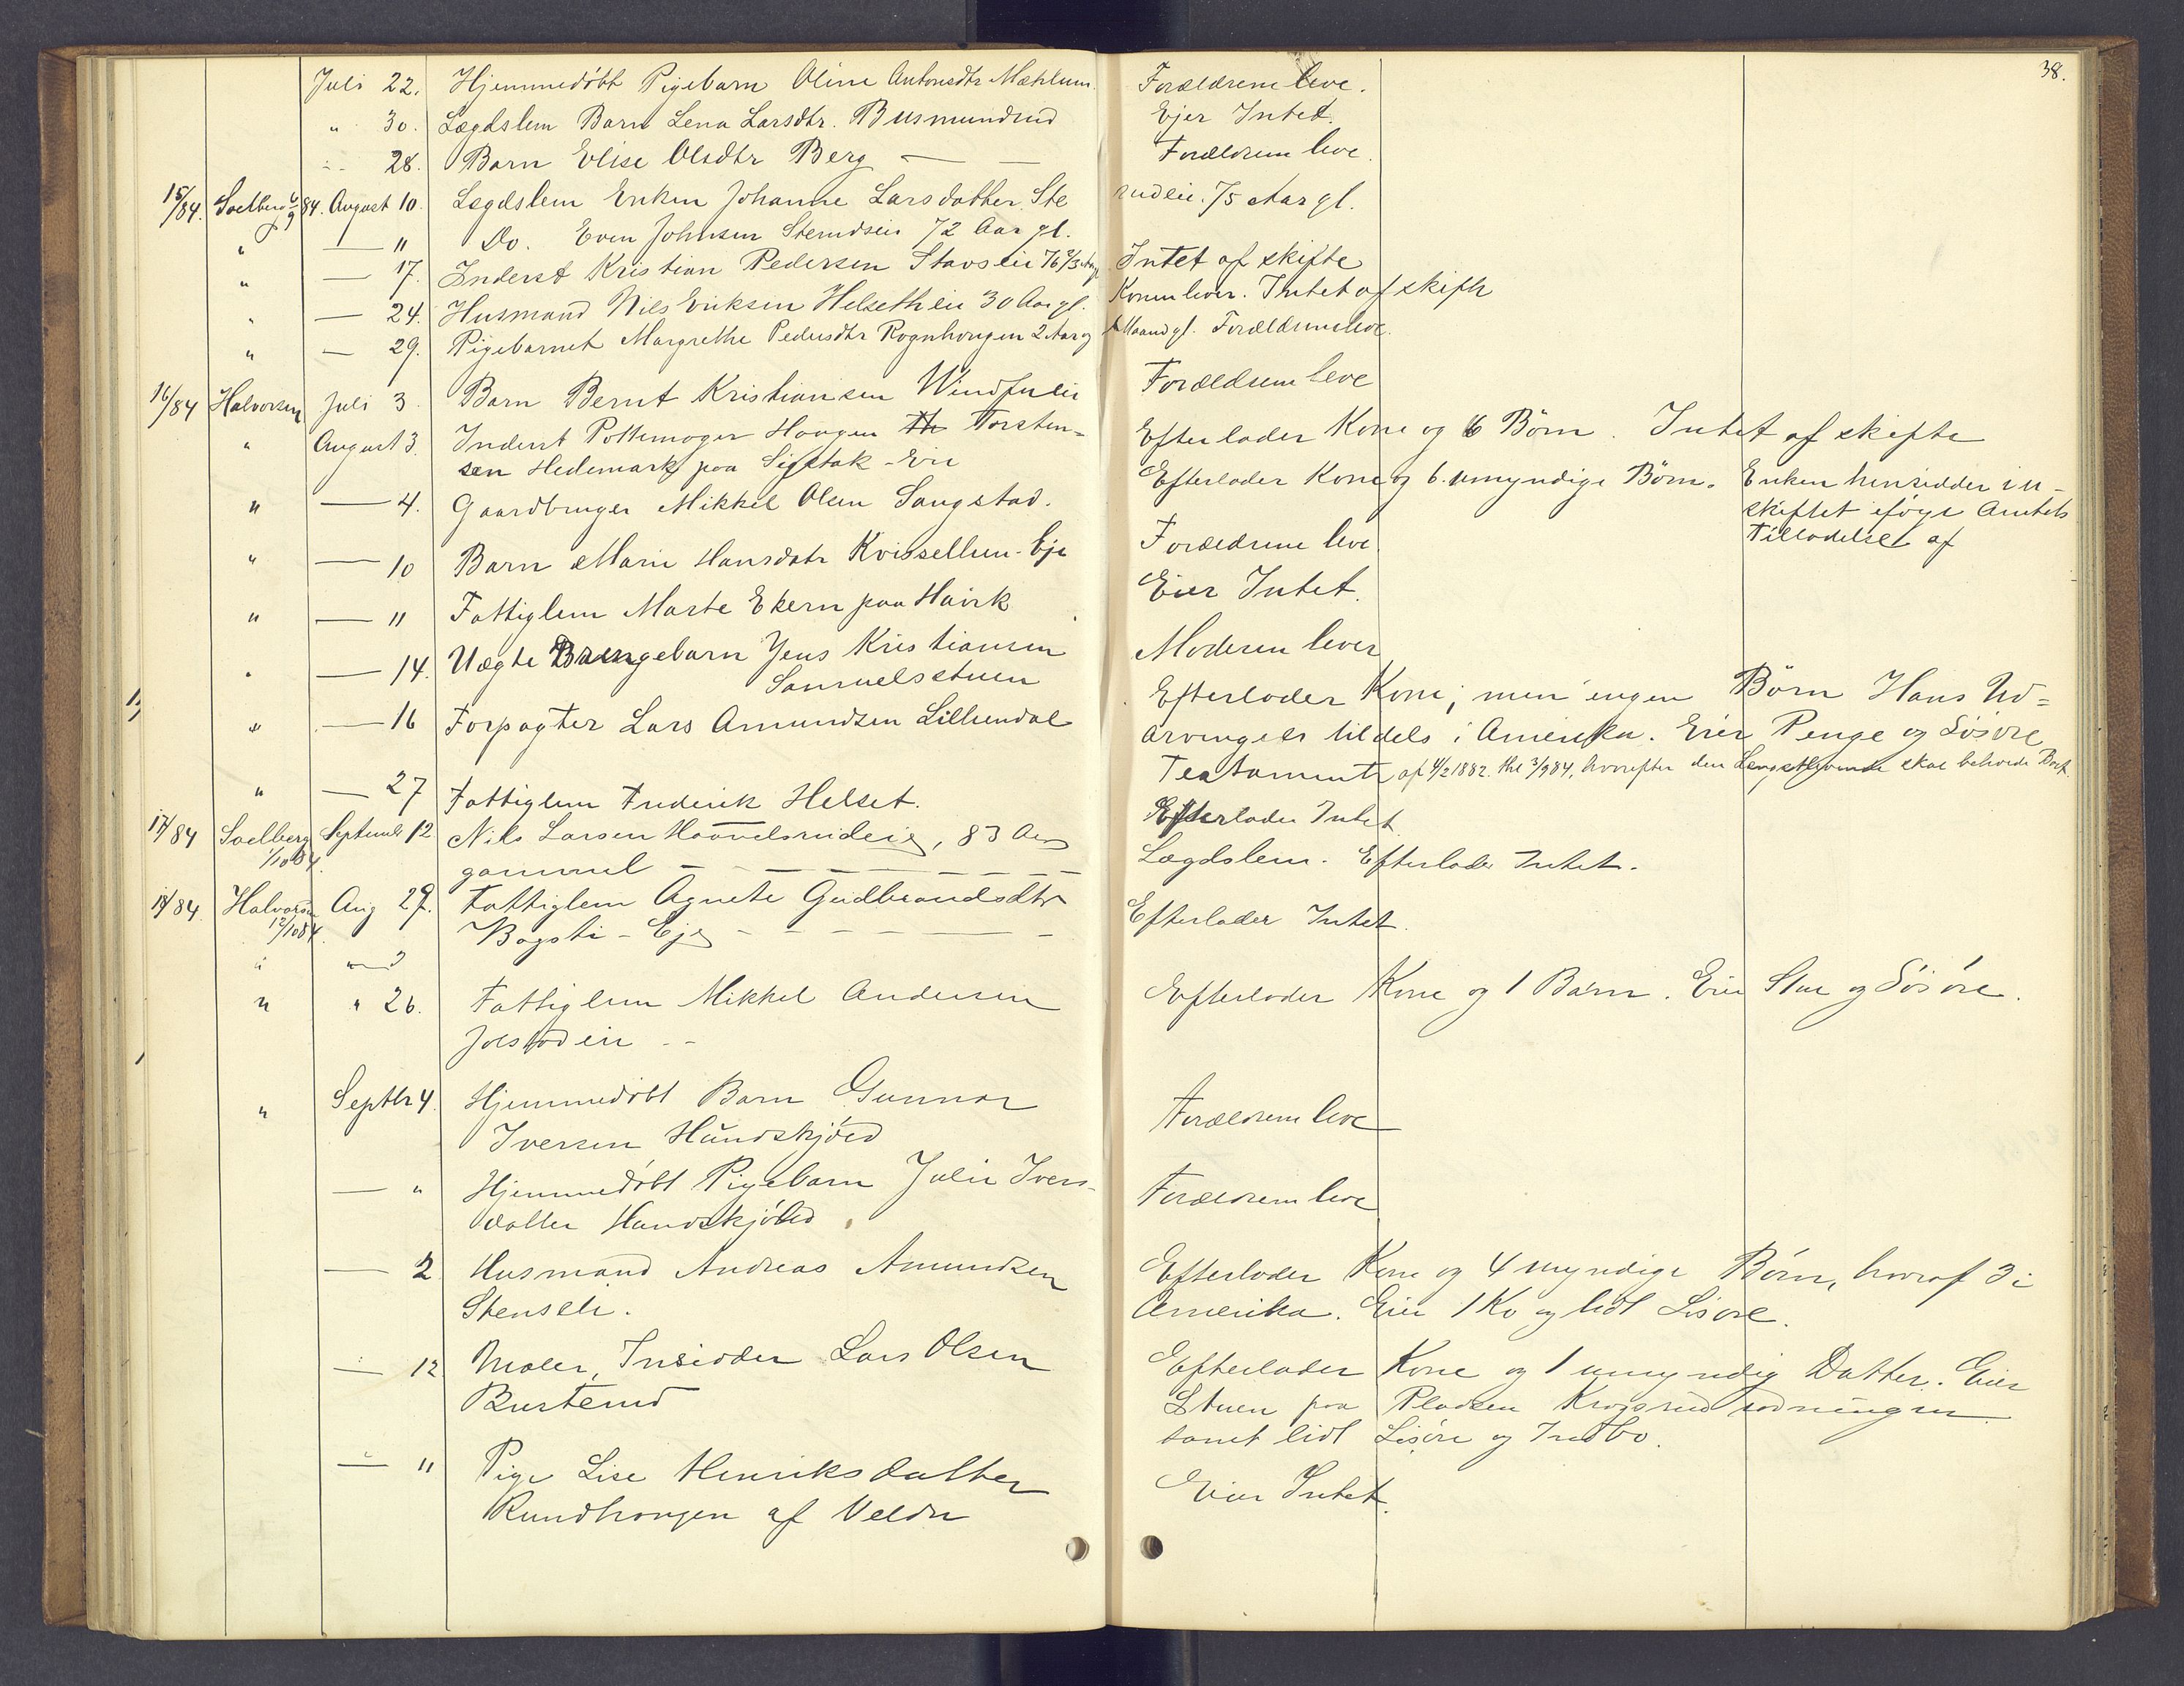 38.
Juli 22. Hjemmedöbt Pigebarn Oline Antonsdtr Mæhlum. Forældrene leve.
" 30. Lægdslem Barn Lena Larsdtr. Busmundrud Ejer Intet.
" 28. Barn Elise Olsdtr Berg — — Forældrene leve.
15/84. Soelberg 6/9 84. August 10. Lægdslem Enken Johanne Larsdatter Ste rudeie. 75 Aar gl.
" — " Do. Even Johnsen Stemdseie 72 Aar gl.
" — 17. Inderst Kristian Pedersen Stavseie 76 2/3 Aar Intet af skifte
" — 24. Husmand Nils Eriksen Helsetheie 30 Aar gl. Konen lever. Intet af skifte
" — 29. Pigebarnet Margrethe Pedersdtr Rognhougen 2 Aar og Maand gl. Forældrene leve.
16/84 Halvorsen Juli 3. Barn Bernt Kristiansen Windjueie Forældrene leve
" August 3. Inderst Pottemager Haagen Th Torsten- Efterlader Kone og 6 Börn. Intet af skifte
sen Hedemark paa Sigstak-Eie
" — 4. Gaardbruger Mikkel Olsen Sangstad. Efterlader Kone og 6 umyndige Börn. Enken hensidder i u-
skiftet ifölge Amtets
Tilladelse af
" — 10 Barn Marie Hansdatr Kvissellum-Eje Forældrene leve.
" — " Fattiglem Marte Ekern paa Havik Eier Intet.
" — 14. Uægte Drengebarn Jens Kristiansen Moderen lever
Samuelsstuen
" — 16 Forpagter Lars Amundsen Lillundal Efterlader Kone; men ingen Börn Hans Ud=
arvinger tildels i Amerika. Eier Penge og Lösöre
Testamente af 4/2 1882. thl 3/9 84, hvorefter den Længstlevende skal beholde Boet.
" — 27 Fattiglem Frederik Helset. Efterlader Intet
17/84 Soelberg 1/10 84. Septembr 12 Nils Larsen Haavelsrudeie, 83 Aar
gammel — — Lægdslem. Efterlader Intet.
18/84. Halvorsen 12/10 84. Aug 29. Fattiglem Agnete Gudbrandsdtr
Bagsti-Eje — — Efterlader Intet.
" " 26. Fattiglem Mikkel Andersen Efterlader Kone og 1 Barn. Eier Stue og Lösöre.
Jolstadeie --
" Septbr 4. Hjemmedöbt Barn Gunnar
Iversen Hundskjöld Forældrene leve
— " Hjemmedöbt Pigebarn Julie Ivers-
datter Hundskjöld. Forældrene leve
— 2 Husmand Andreas Amundsen Efterlader Kone og 4 myndige Börn, hvoraf 3 i
Stensli. Amerika. Eier 1 Ko og lidt Lösöre.
— 12 Maler, Insidder Lars Olsen Efterlader Kone og 1 umyndig Datter. Eier
Busterud Stuen paa Pladsen Krogsrudrodningen
samt lidt Lösöre og Indbo.
— " Pige Lise Henriksdatter Eier Intet.
Rundhougen af Veldre